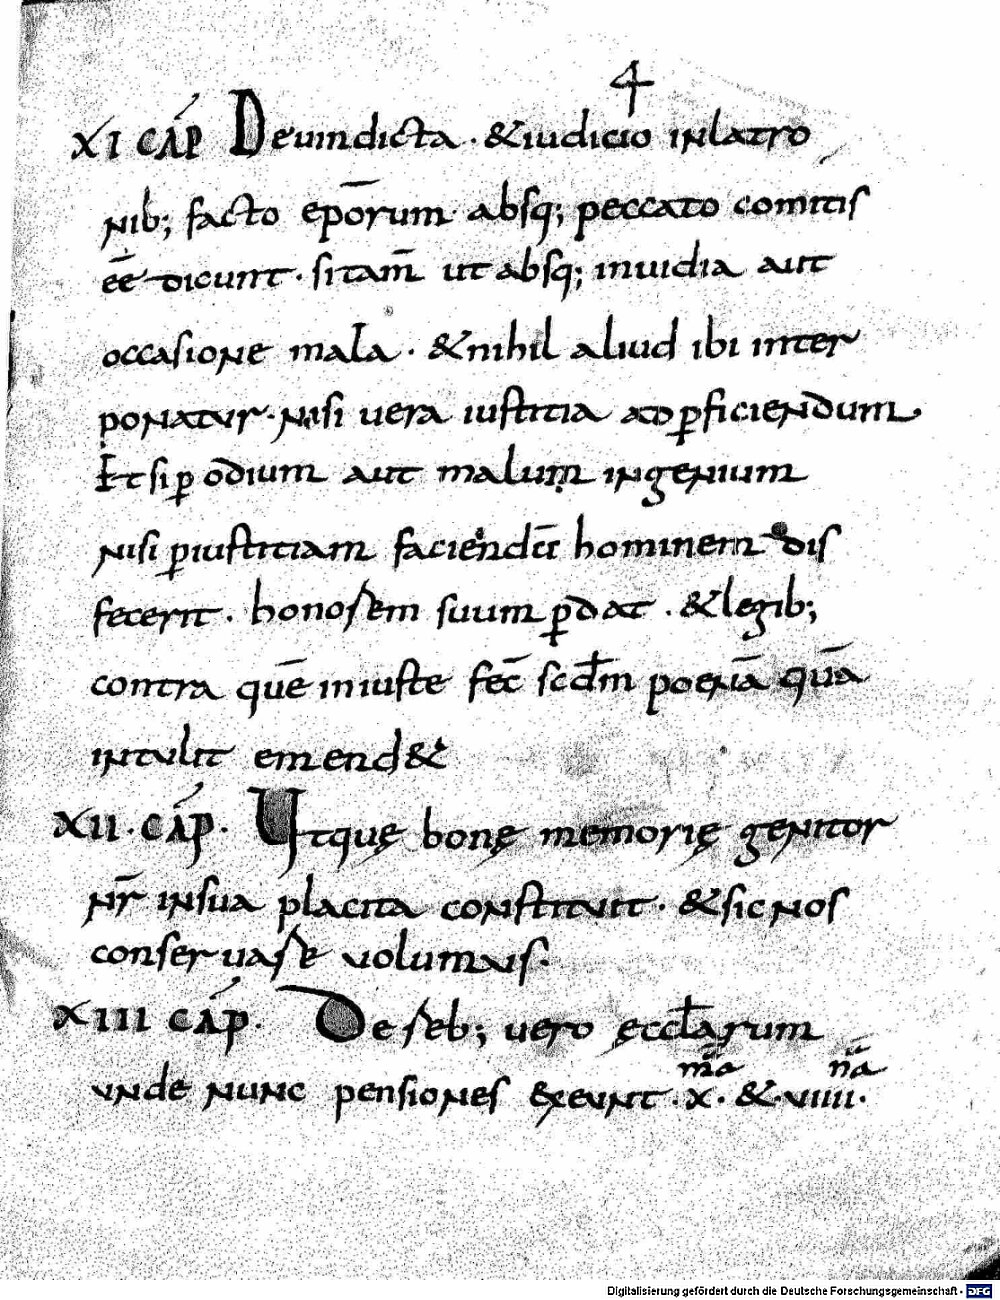 4
XI CAP Deuindicta · &iudicio inlatro
nib; facto epōrum absq; peccato comitis
eē dicunt · sitam̄ ut absq; inuidia aut
occasione mala · &nihil aliud ibi inter
ponatur · nisi uera iustitia adꝑficiendum
Et siꝑ odium aut malum ingenium
nisi ꝑiustitiam faciendā hominem dis
fecerit · honorem suum ꝑdat · &legib;
contra quē iniuste fec̄ scdm̄ poenā quā
intulit emend&
XII · CAP · Utquę bonę memorię genitor
nr̄ insua placita constituit · &sic nos
conseruare volumus ·
XIII CAP · De reb; uero ęccl̄arum
unde nunc pensiones exeunt · x̄ma · & · viiiina ·
Digitalisierung gefördert durch die Deutsche Forschungsgemeinschaft - DFG